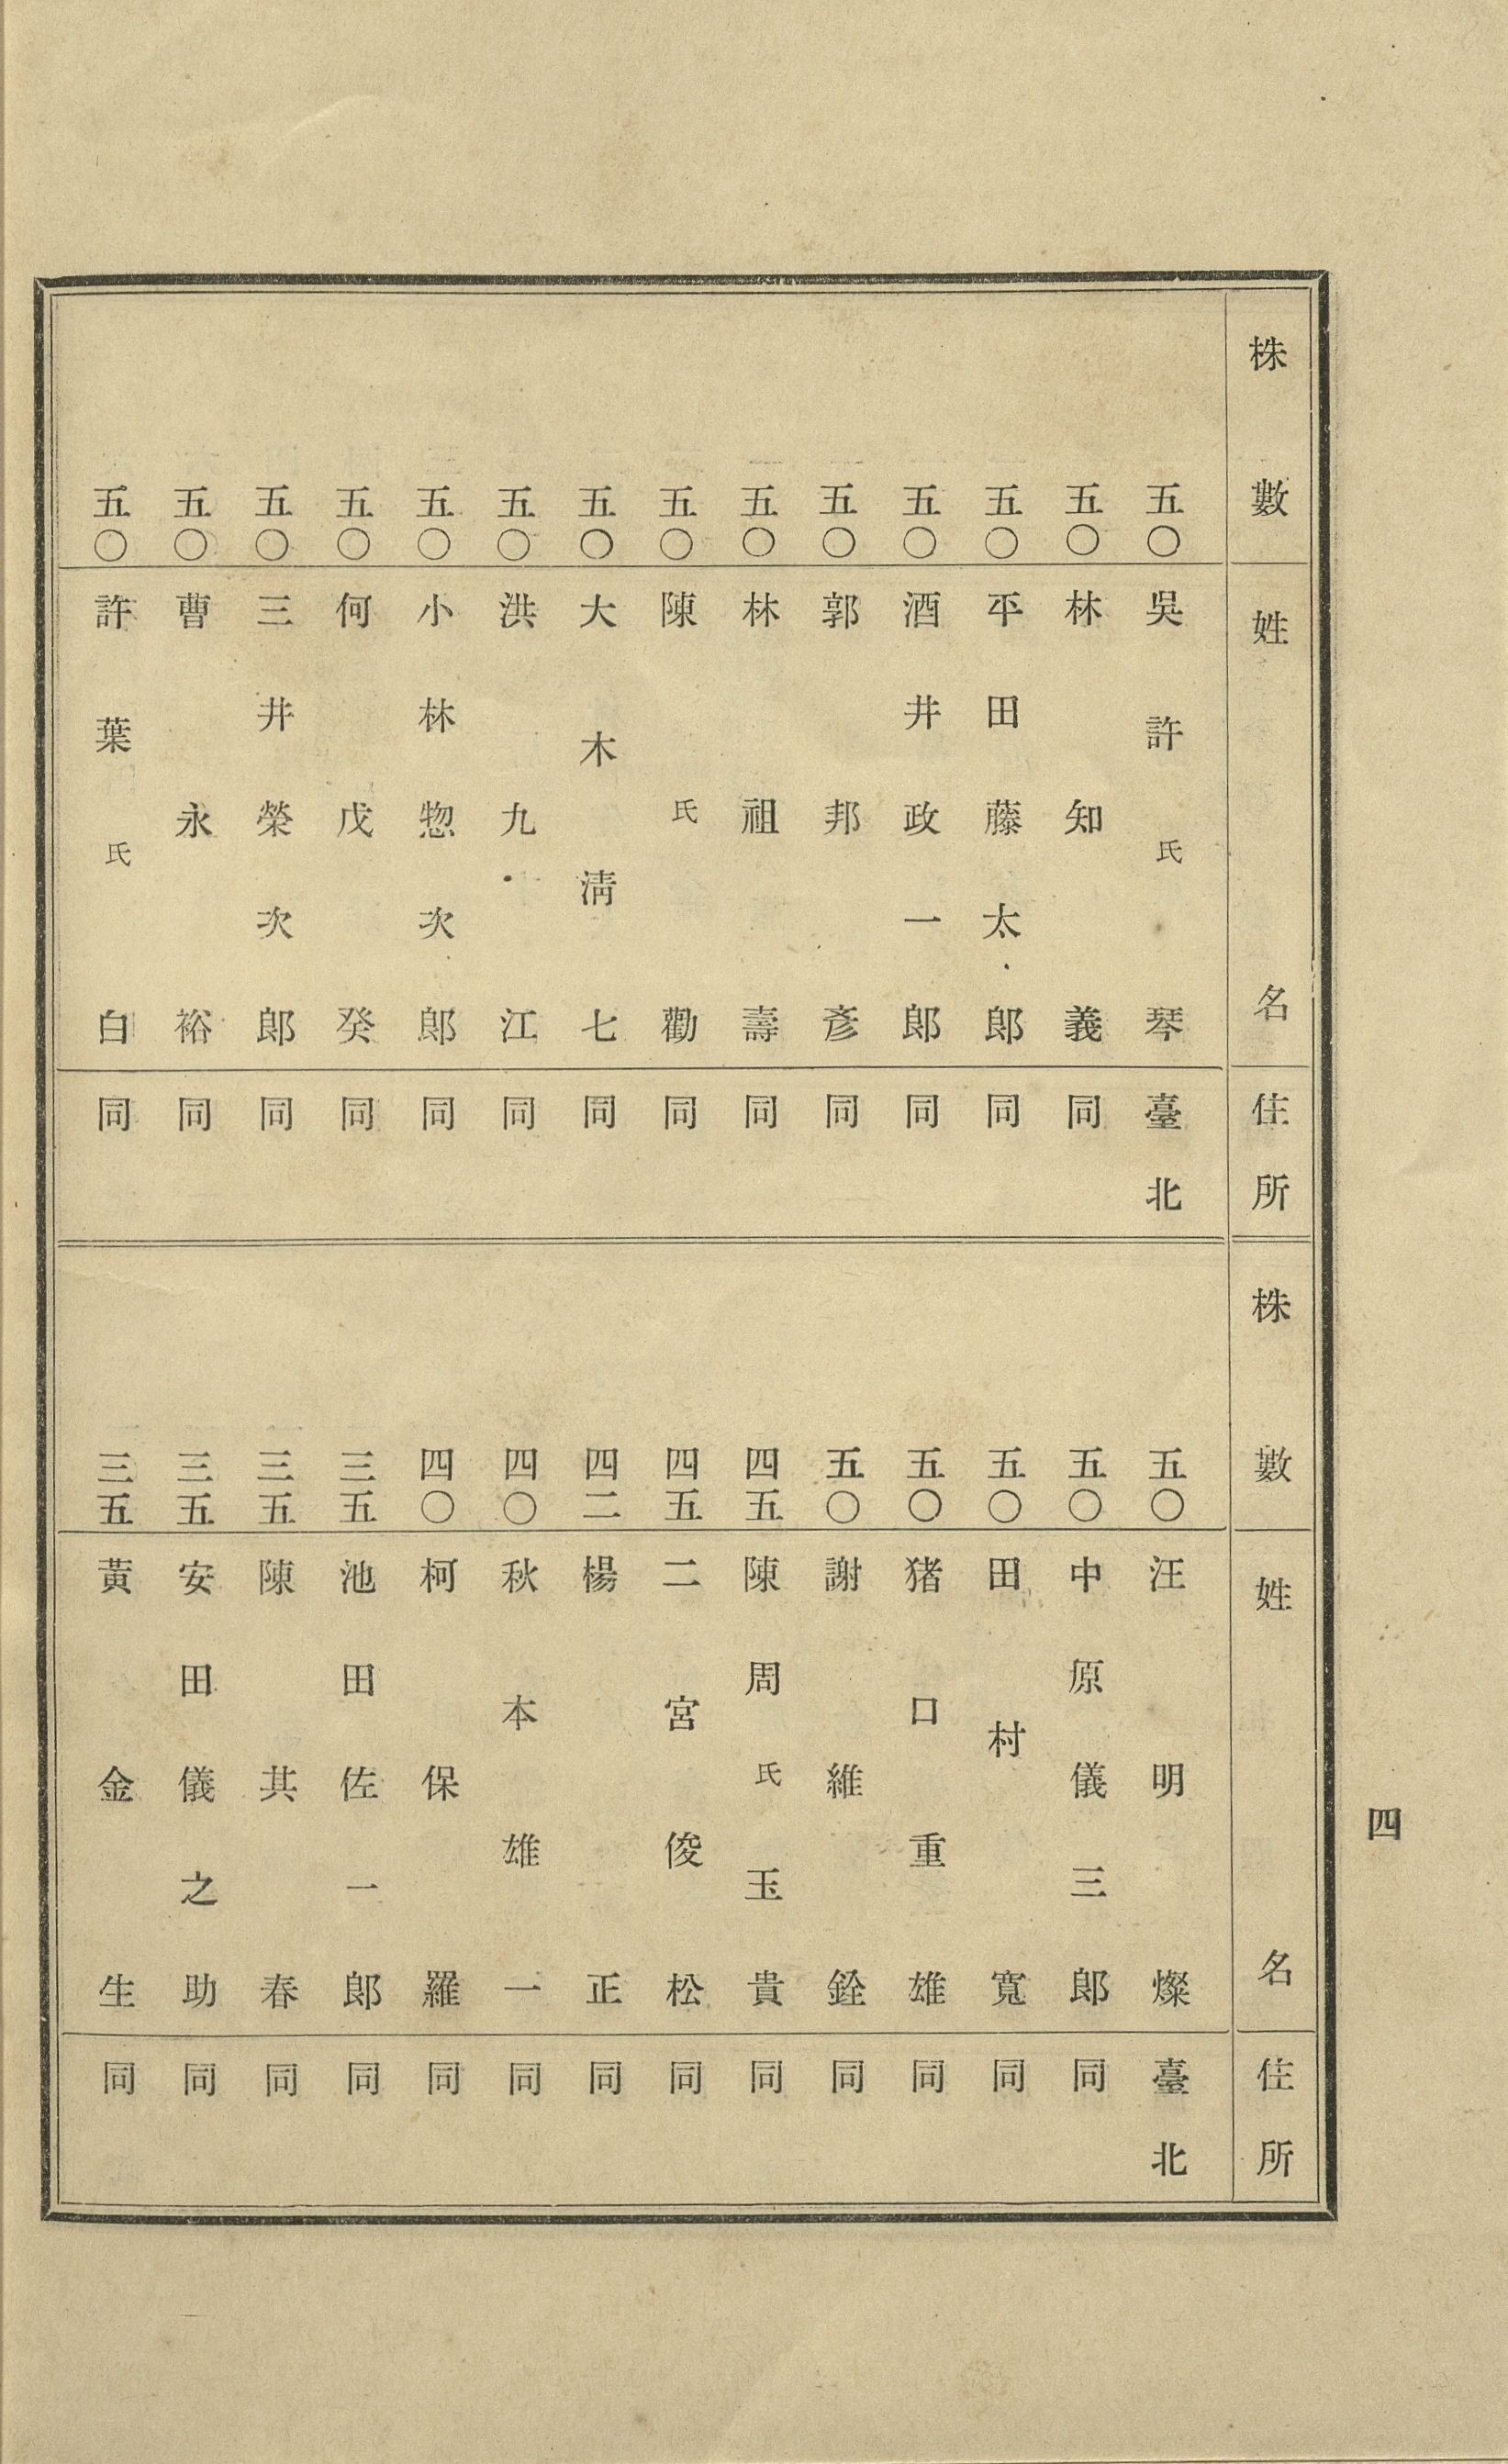 四
株數 姓名 住所
五〇 吳許氏琴 臺北
五〇 林知義 同
五〇 平田藤太郎 同
五〇 酒井政一郎 同
五〇 郭邦彥 同
五〇 林祖壽 同
五〇 陳氏勸 同
五〇 大木淸七 同
五〇 洪九江 同
五〇 小林惣次郎 同
五〇 何戊癸 同
五〇 三井榮次郎 同
五〇 曹永裕 同
五〇 許葉氏白 同
株數 姓名 住所
五〇 汪明燦 臺北
五〇 中原儀三郎 同
五〇 田村寬 同
五〇 猪口重雄 同
五〇 謝維銓 同
四五 陳周氏玉貴 同
四五 二宮俊松 同
四二 楊正 同
四〇 秋本雄一 同
四〇 柯保羅 同
三五 池田佐一郎 同
三五 陳其春 同
三五 安田儀之助 同
三五 黃金生 同